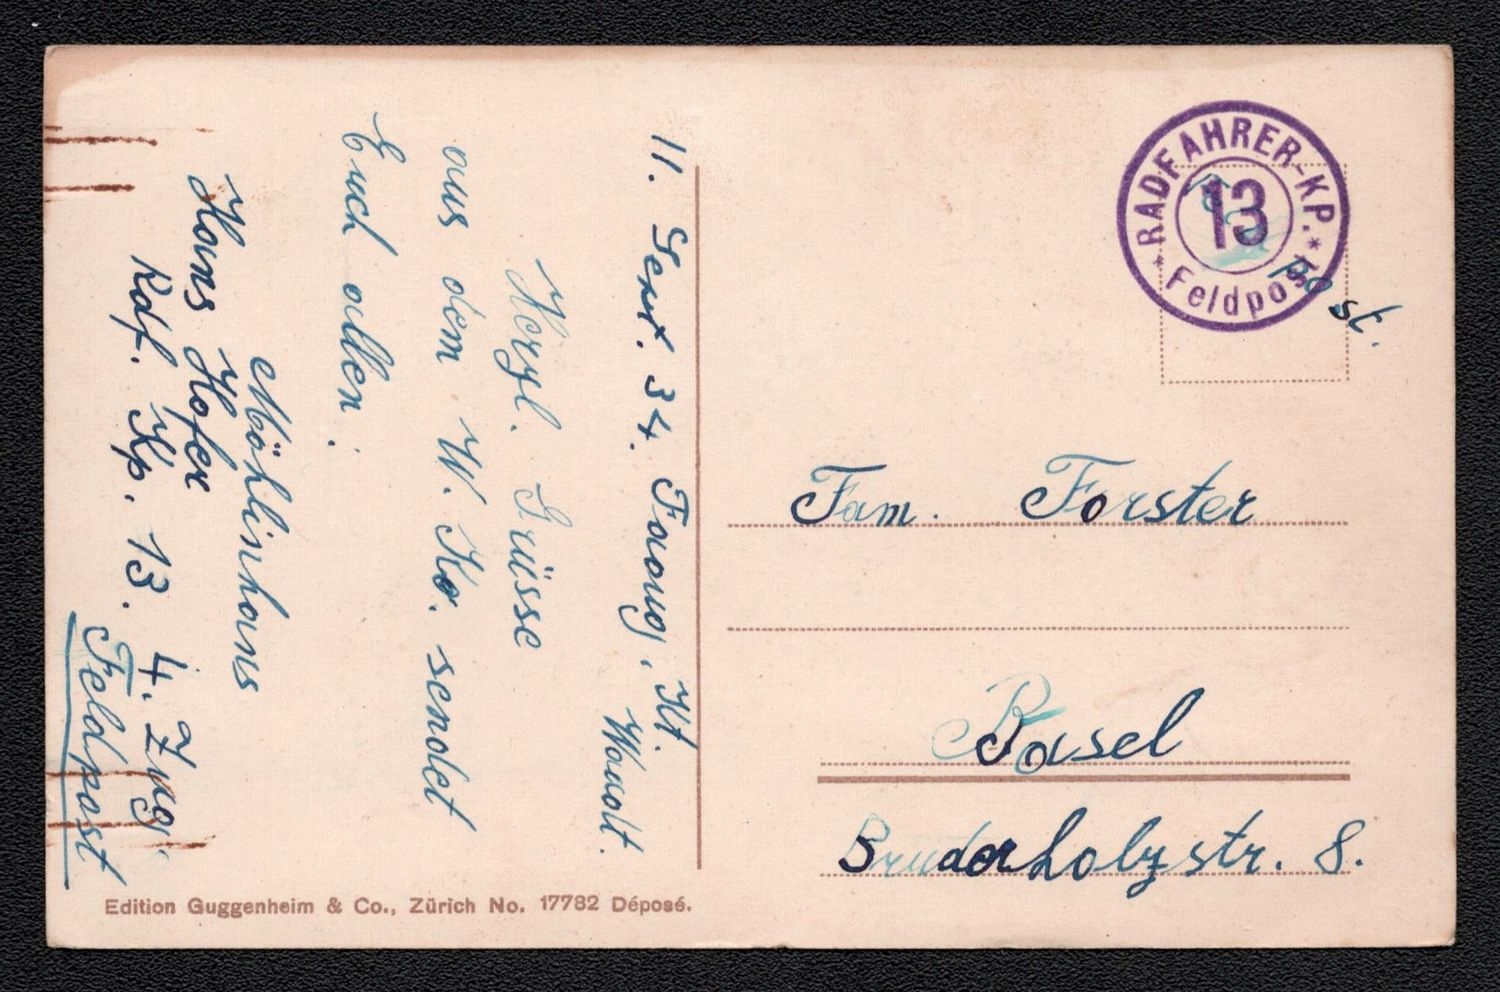 11. Sept. 34. Faoug, Kt.
Waadt.
Herzl. Grüsse
aus dem W. Ko. sendet
Euch allen:
Möhlinhans
Hans Hofer
Rdf. Kp. 13. 4. Zug.
Feldpost
Edition Guggenheim & Co., Zürich No. 17782 Déposé.
*RADFAHRER-KP.*
13
Feldpost
Feldpost.
Fam. Forster
Basel
Bruderholzstr. 8.